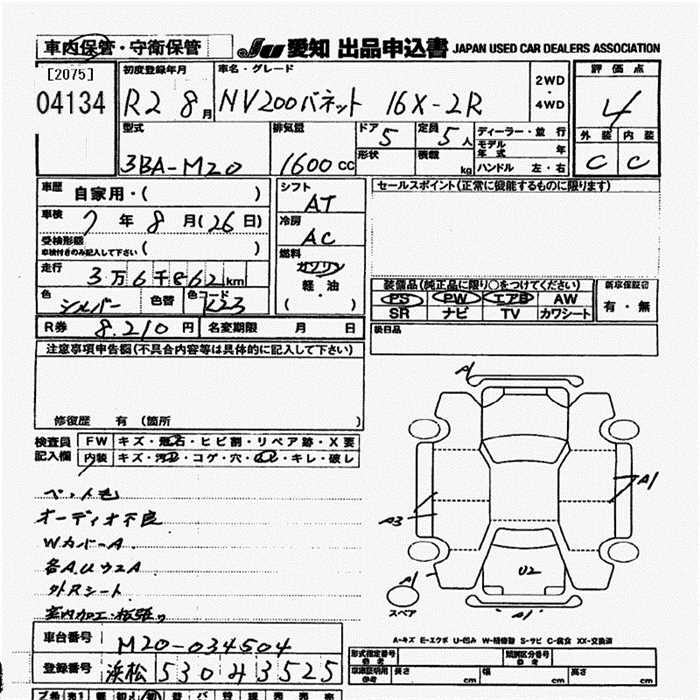 車内保管・守衛保管
JU 愛知 出品申込書 JAPAN USED CAR DEALERS ASSOCIATION
[2075]
04134
初度登録年月
R2 8月
車名・グレード
NV200バネット 16X-2R
2WD
・
4WD
評価点
4
外装 内装
C C
型式
3BA-M20
排気量
1600cc
ドア 5
形状
定員 5人
積載 kg
ディーラー・並行
モデル年式 年
ハンドル 左・右
車歴 自家用・( )
車検 7年8月(26日)
受検形態
車検付きのみ記入して下さい ( )
走行 3万6千862km
色 シルバー 色替 色コード K23
シフト
AT
冷房
AC
燃料
ガソリン
軽・油
( )
セールスポイント(正常に機能するものに限ります)
装備品(純正品に限り○をつけてください)
PS PW エアB AW
SR ナビ TV カワシート
新車保証書
有・無
R券 8,210円 名変期限 月 日
後日品
注意事項申告欄(不具合内容等は具体的に記入して下さい)
修復歴 有 (箇所 )
検査員記入欄
FW キズ・飛石・ヒビ割・リペア跡・X要
内装 キズ・汚れ・コゲ・穴・・キレ・破レ
ペット毛
オーディオ不良
WカバーA
各A,Uウス A
外Rシート
室内加工・
A
A1
A3
A1
U2
A1
スペア
A-キズ E-エクボ U-凹み W-補修跡 S-サビ C-腐食 XX-交換済
車台番号 M20-034504
登録番号 浜松 530 4 3525
形式指定番号
参考
類別区分番号
参考
車庫証明用
参考
長さ cm 幅 cm 高さ cm